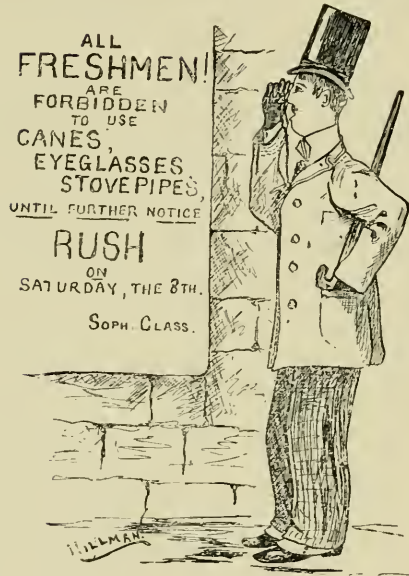 ALL
FRESHMEN!
ARE
FORBIDDEN
TO USE
CANES,
EYEGLASSES
STOVEPIPES,
UNTIL FURTHER NOTICE
RUSH
ON
SATURDAY, THE 8TH.
SOPH. CLASS.
HILLMAN.